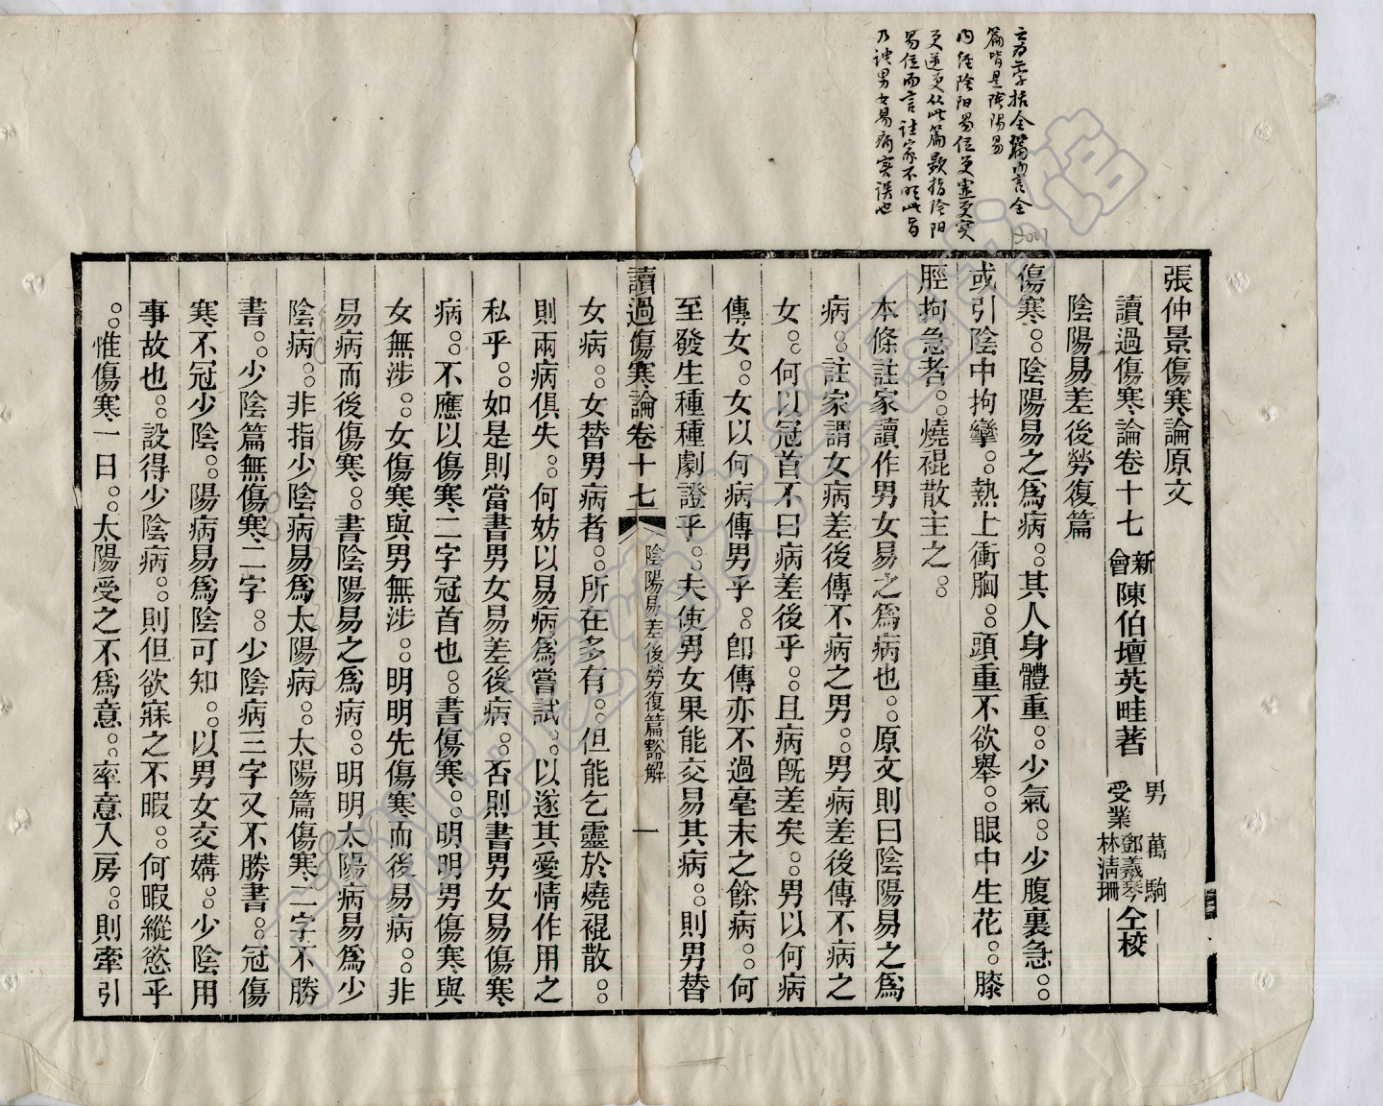 張仲景傷寒論原文
讀過傷寒論卷十七 新會 陳伯壇英畦著 男 萬駒 受業 鄧羲琴 林清珊 仝校
陰陽易差後勞復篇
傷寒。陰陽易之爲病。其人身體重。少氣。少腹裏急。
或引陰中拘攣。熱上衝胸。頭重不欲舉。眼中生花。膝
脛拘急者。燒裩散主之。
本條註家讀作男女易之爲病也。原文則曰陰陽易之爲
病。註家謂女病差後傳不病之男。男病差後傳不病之
女。何以冠首不曰病差後乎。且病旣差矣。男以何病
傳女。女以何病傳男乎。卽傳亦不過毫末之餘病。何
至發生種種劇證乎。夫使男女果能交易其病。則男替
讀過傷寒論卷十七 陰陽易差後勞復篇豁解 一
女病。女替男病者。所在多有。但能乞靈於燒裩散。
則兩病俱失。何妨以易病爲嘗試。以遂其愛情作用之
私乎。如是則當書男女易差後病。否則書男女易傷寒
病。不應以傷寒二字冠首也。書傷寒。明明男傷寒與
女無涉。女傷寒與男無涉。明明先傷寒而後易病。非
易病而後傷寒。書陰陽易之爲病。明明太陽病易爲少
陰病。非指少陰病易爲太陽病。太陽篇傷寒二字不勝
書。少陰篇無傷寒二字。少陰病三字又不勝書。冠傷
寒不冠少陰。陽病易爲陰可知。以男女交媾。少陰用
事故也。設得少陰病。則但欲寐之不暇。何暇縱慾乎
。惟傷寒一日。太陽受之不爲意。率意入房。則牽引
言字括全篇而言全
篇皆是陰陽易
內經陰阳易位更虛更實
更逆更從此篇歎指陰阳
易位而言註家不明此旨
乃謂男女易病實誤也